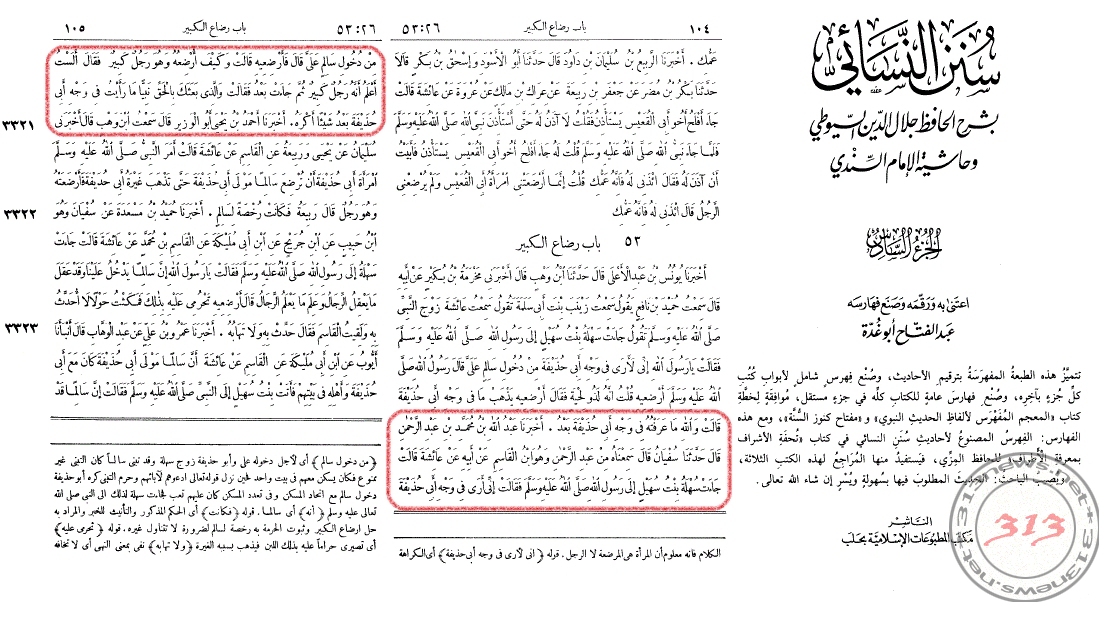 سنن النسائي
بشرح الحافظ جلال الدين السيوطي
وحاشية الإمام السندي
الجزء السادس
اعتنى به ورقمه وصنع فهارسه
عبد الفتاح أبو غدة
تتميز هذه الطبعة المفهرسة بترقيم الأحاديث، وصنع فهرس شامل لأبواب كتب
كل جزء بآخره، وصنع فهارس عامة للكتاب كله في جزء مستقل، موافقة لخطة
كتاب «المعجم المفهرس لألفاظ الحديث النبوي» و«مفتاح كنوز السنة»، ومع هذه
الفهارس: الفهرس المصنوع لأحاديث سنن النسائي في كتاب «تحفة الأشراف
بمعرفة الأطراف» للحافظ المزي، فيستفيد منها المراجع لهذه الكتب الثلاثة،
ويصيب الباحث: الحديث المطلوب فيها بسهولة ويسر إن شاء الله تعالى.
الناشر
مكتب المطبوعات الإسلامية بحلب
313
313news.net
١٠٤ باب رضاع الكبير ٥٣:٢٦
عمك . أخبرنا الربيع بن سليمان بن داود قال حدثنا أبو الأسود وإسحق بن بكر قالا
حدثنا بكر بن مضر عن جعفر بن ربيعة عن عراك بن مالك عن عروة عن عائشة قالت
جاء أفلح أخو أبي القعيس يستأذن فقلت لا آذن له حتى أستأذن نبي الله صلى الله عليه وسلم
فلما جاء نبي الله صلى الله عليه وسلم قلت له جاء أفلح أخو أبي القعيس يستأذن فأبيت
أن آذن له فقال ائذني له فإنه عمك قلت إنما أرضعتني امرأة أبي القعيس ولم يرضعني
الرجل قال ائذني له فإنه عمك
٥٣ باب رضاع الكبير
أخبرنا يونس بن عبد الأعلى قال حدثنا ابن وهب قال أخبرني مخرمة بن بكير عن أبيه
قال سمعت حميد بن نافع يقول سمعت زينب بنت أبي سلمة تقول سمعت عائشة زوج النبي
صلى الله عليه وسلم تقول جاءت سهلة بنت سهيل إلى رسول الله صلى الله عليه وسلم
فقالت يا رسول الله إني لأرى في وجه أبي حذيفة من دخول سالم علي قال رسول الله صلى
الله عليه وسلم أرضعيه قلت إنه لذو لحية فقال أرضعيه يذهب ما في وجه أبي حذيفة
قالت والله ما عرفته في وجه أبي حذيفة بعد . أخبرنا عبد الله بن محمد بن عبد الرحمن
قال حدثنا سفيان قال سمعناه من عبد الرحمن وهو ابن القاسم عن أبيه عن عائشة قالت
جاءت سهلة بنت سهيل إلى رسول الله صلى الله عليه وسلم فقالت إني أرى في وجه أبي حذيفة
الكلام فانه معلوم أن المرأة هي المرضعة لا الرجل . قوله ﴿انى لأرى فى وجه أبى حذيفة﴾ أى الكراهة
٥٣:٢٦ باب رضاع الكبير ١٠٥
من دخول سالم علي قال فأرضعيه قالت وكيف أرضعه وهو رجل كبير فقال ألست
أعلم أنه رجل كبير ثم جاءت بعد فقالت والذي بعثك بالحق نبيا ما رأيت في وجه أبي
حذيفة بعد شيئا أكره . أخبرنا أحمد بن يحيى أبو الوزير قال سمعت ابن وهب قال أخبرني
٣٣٢١
سليمان عن يحيى وربيعة عن القاسم عن عائشة قالت أمر النبي صلى الله عليه وسلم
امرأة أبي حذيفة أن ترضع سالما مولى أبي حذيفة حتى تذهب غيرة أبي حذيفة فأرضعته
وهو رجل قال ربيعة فكانت رخصة لسالم . أخبرنا حميد بن مسعدة عن سفيان وهو
٣٣٢٢
ابن حبيب عن ابن جريج عن ابن أبي مليكة عن القاسم بن محمد عن عائشة قالت جاءت
سهلة إلى رسول الله صلى الله عليه وسلم فقالت يا رسول الله إن سالما يدخل علينا وقد عقل
ما يعقل الرجال وعلم ما يعلم الرجال قال أرضعيه تحرمي عليه بذلك فمكثت حولا لا أحدث
به ولقيت القاسم فقال حدث به ولا تهابه . أخبرنا عمرو بن علي عن عبد الوهاب قال أنبأنا
٣٣٢٣
أيوب عن ابن أبي مليكة عن القاسم عن عائشة أن سالما مولى أبي حذيفة كان مع أبي
حذيفة وأهله في بيتهم فأتت بنت سهيل إلى النبي صلى الله عليه وسلم فقالت إن سالما قد
﴿من دخول سالم﴾ أى لأجل دخوله على وأبو حذيفة زوج سهلة وقد تبنى سالما كان التبنى غير
ممنوع فكان يسكن معهم فى بيت واحد فحين نزل قوله تعالى ادعوهم لآبائهم وحرم التبنى كره أبو حذيفة
دخول سالم مع اتحاد المسكن وفى تعدد المسكن كان عليهم تعب فجاءت سهلة لذلك الى النبى صلى الله
تعالى عليه وسلم ﴿أنه﴾ أى سالما. قوله ﴿فكانت﴾ أى الحكم المذكور والتأنيث للخبر والمراد به
حل ارضاع الكبير وثبوت الحرمة به رخصة لسالم لضرورة لا تتناول غيره. قوله ﴿تحرمى عليه﴾
أى تصيرى حراما عليه بذلك اللبن فيذهب بسببه الغيرة ﴿ولا تهابه﴾ نفى بمعنى النهى أى لا تخافه